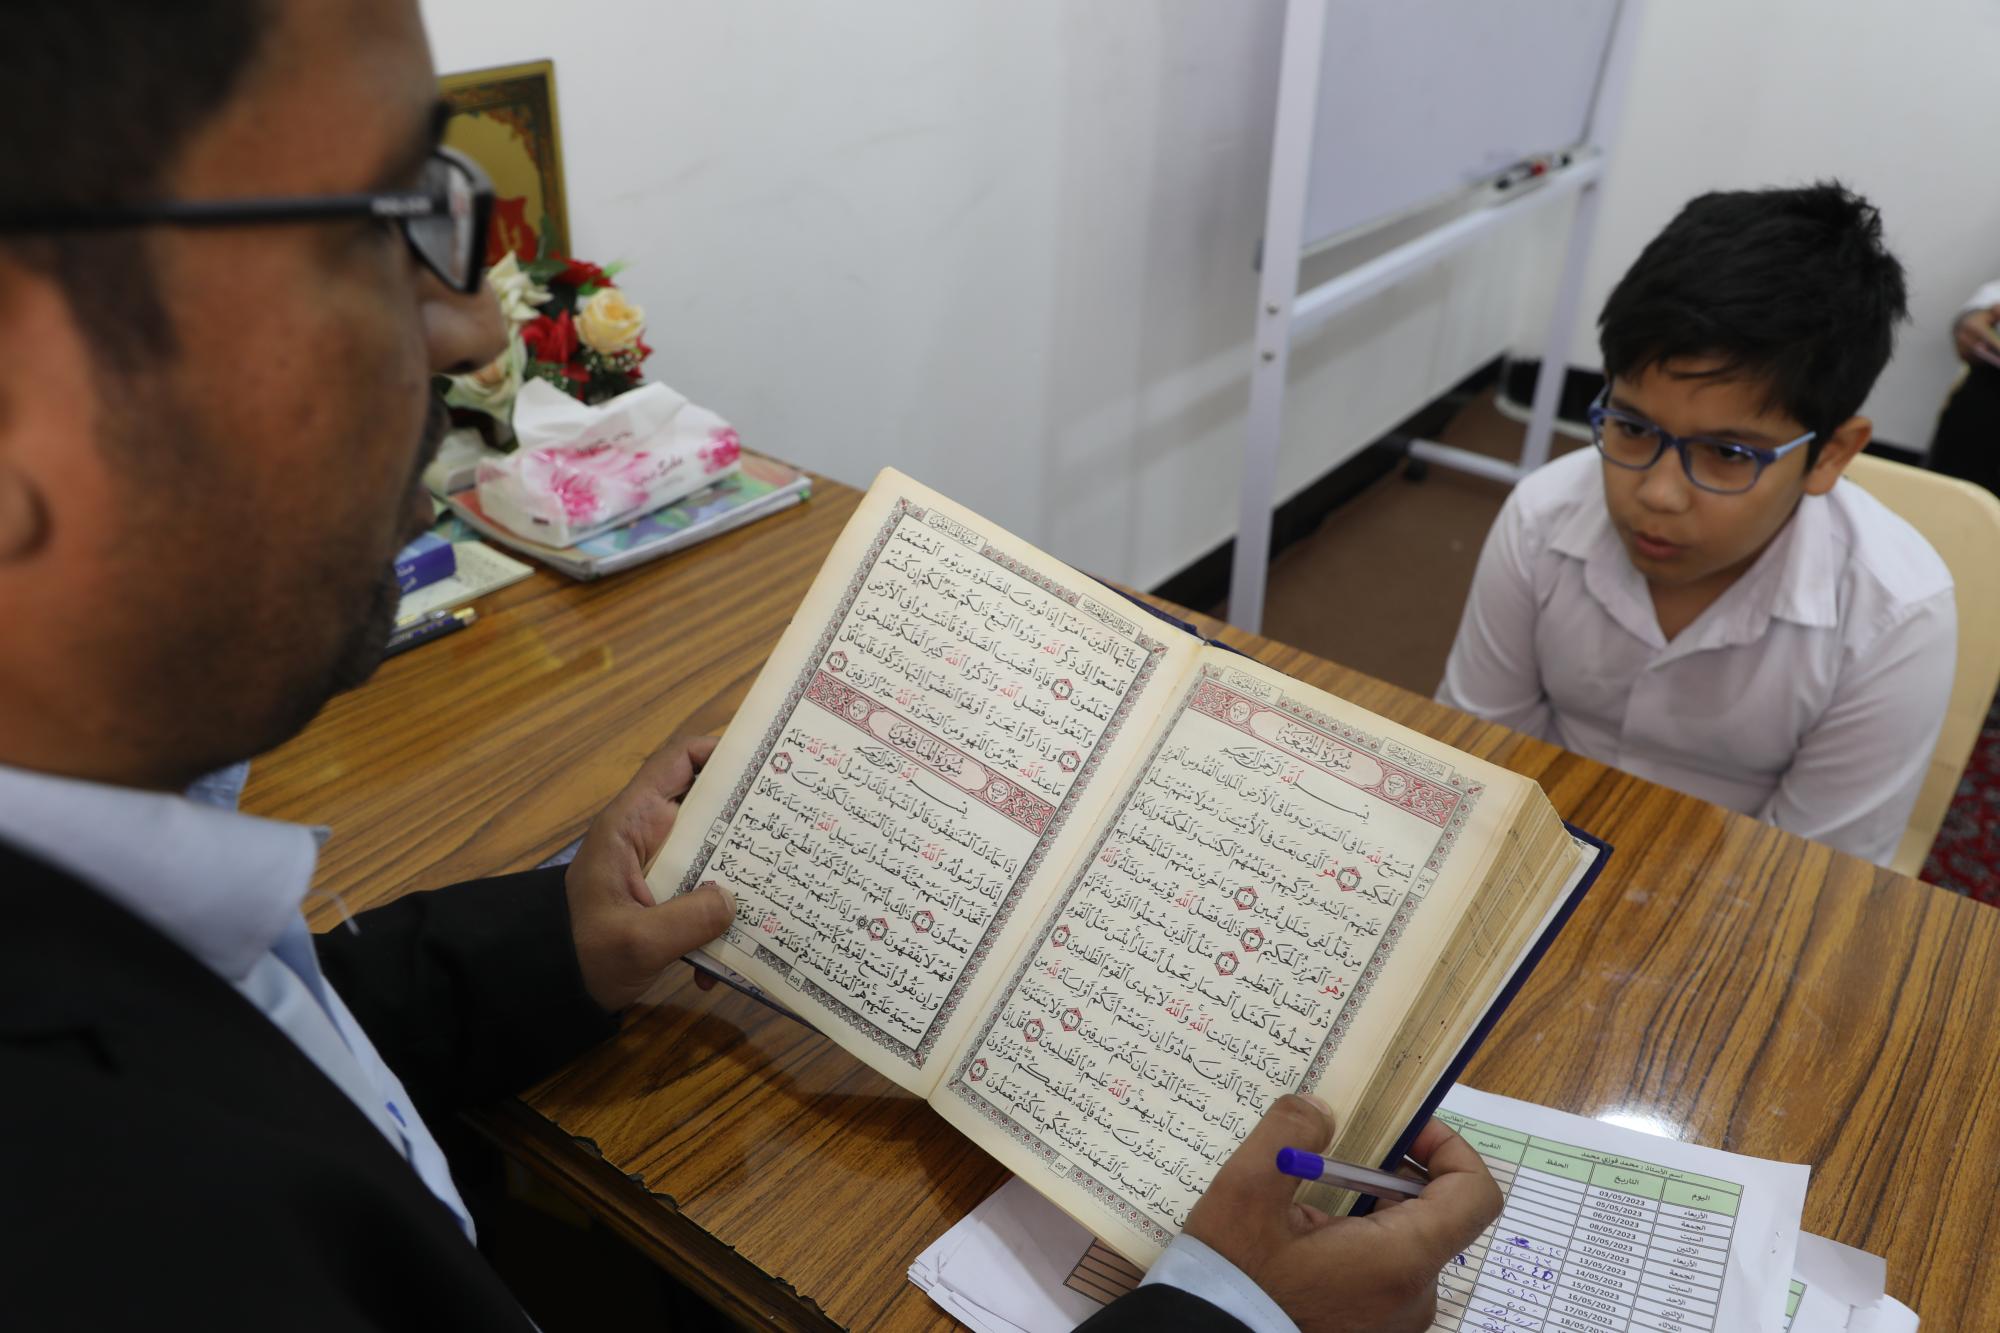 سُورَةُ الجُمُعَةِ
الجزء الثامن والعشرون
سُورَةُ الجُمُعَةِ
بِسْمِ ٱللَّهِ ٱلرَّحْمَٰنِ ٱلرَّحِيمِ
يُسَبِّحُ لِلَّهِ مَا فِى ٱلسَّمَٰوَٰتِ وَمَا فِى ٱلْأَرْضِ ٱلْمَلِكِ ٱلْقُدُّوسِ ٱلْعَزِيزِ
ٱلْحَكِيمِ ١ هُوَ ٱلَّذِى بَعَثَ فِى ٱلْأُمِّيِّـۧنَ رَسُولًا مِّنْهُمْ يَتْلُوا۟
عَلَيْهِمْ ءَايَٰتِهِۦ وَيُزَكِّيهِمْ وَيُعَلِّمُهُمُ ٱلْكِتَٰبَ وَٱلْحِكْمَةَ وَإِن كَانُوا۟
مِن قَبْلُ لَفِى ضَلَٰلٍ مُّبِينٍ ٢ وَءَاخَرِينَ مِنْهُمْ لَمَّا يَلْحَقُوا۟ بِهِمْ
وَهُوَ ٱلْعَزِيزُ ٱلْحَكِيمُ ٣ ذَٰلِكَ فَضْلُ ٱللَّهِ يُؤْتِيهِ مَن يَشَآءُ وَٱللَّهُ
ذُو ٱلْفَضْلِ ٱلْعَظِيمِ ٤ مَثَلُ ٱلَّذِينَ حُمِّلُوا۟ ٱلتَّوْرَىٰةَ ثُمَّ لَمْ
يَحْمِلُوهَا كَمَثَلِ ٱلْحِمَارِ يَحْمِلُ أَسْفَارًۢا بِئْسَ مَثَلُ ٱلْقَوْمِ
ٱلَّذِينَ كَذَّبُوا۟ بِـَٔايَٰتِ ٱللَّهِ وَٱللَّهُ لَا يَهْدِى ٱلْقَوْمَ ٱلظَّٰلِمِينَ ٥
يَٰٓأَيُّهَا ٱلَّذِينَ هَادُوٓا۟ إِن زَعَمْتُمْ أَنَّكُمْ أَوْلِيَآءُ لِلَّهِ مِن
دُونِ ٱلنَّاسِ فَتَمَنَّوُا۟ ٱلْمَوْتَ إِن كُنتُمْ صَٰدِقِينَ ٦ وَلَا يَتَمَنَّوْنَهُۥٓ
بِمَا قَدَّمَتْ أَيْدِيهِمْ وَٱللَّهُ عَلِيمٌۢ بِٱلظَّٰلِمِينَ ٧ قُلْ إِنَّ
ٱلْمَوْتَ ٱلَّذِى تَفِرُّونَ مِنْهُ فَإِنَّهُۥ مُلَٰقِيكُمْ ثُمَّ تُرَدُّونَ
إِلَىٰ عَٰلِمِ ٱلْغَيْبِ وَٱلشَّهَٰدَةِ فَيُنَبِّئُكُم بِمَا كُنتُمْ تَعْمَلُونَ ٨
٥٥٣
الجزء الثامن والعشرون
سُورَةُ المُنَافِقُونَ
يَٰٓأَيُّهَا ٱلَّذِينَ ءَامَنُوٓا۟ إِذَا نُودِىَ لِلصَّلَوٰةِ مِن يَوْمِ ٱلْجُمُعَةِ
فَٱسْعَوْا۟ إِلَىٰ ذِكْرِ ٱللَّهِ وَذَرُوا۟ ٱلْبَيْعَ ذَٰلِكُمْ خَيْرٌ لَّكُمْ إِن كُنتُمْ
تَعْلَمُونَ ٩ فَإِذَا قُضِيَتِ ٱلصَّلَوٰةُ فَٱنتَشِرُوا۟ فِى ٱلْأَرْضِ
وَٱبْتَغُوا۟ مِن فَضْلِ ٱللَّهِ وَٱذْكُرُوا۟ ٱللَّهَ كَثِيرًا لَّعَلَّكُمْ تُفْلِحُونَ
١٠ وَإِذَا رَأَوْا۟ تِجَٰرَةً أَوْ لَهْوًا ٱنفَضُّوٓا۟ إِلَيْهَا وَتَرَكُوكَ قَآئِمًا قُلْ
مَا عِندَ ٱللَّهِ خَيْرٌ مِّنَ ٱللَّهْوِ وَمِنَ ٱلتِّجَٰرَةِ وَٱللَّهُ خَيْرُ ٱلرَّٰزِقِينَ ١١
سُورَةُ المُنَافِقُونَ
بِسْمِ ٱللَّهِ ٱلرَّحْمَٰنِ ٱلرَّحِيمِ
إِذَا جَآءَكَ ٱلْمُنَٰفِقُونَ قَالُوا۟ نَشْهَدُ إِنَّكَ لَرَسُولُ ٱللَّهِ وَٱللَّهُ يَعْلَمُ
إِنَّكَ لَرَسُولُهُۥ وَٱللَّهُ يَشْهَدُ إِنَّ ٱلْمُنَٰفِقِينَ لَكَٰذِبُونَ ١
ٱتَّخَذُوٓا۟ أَيْمَٰنَهُمْ جُنَّةً فَصَدُّوا۟ عَن سَبِيلِ ٱللَّهِ إِنَّهُمْ سَآءَ مَا كَانُوا۟
يَعْمَلُونَ ٢ ذَٰلِكَ بِأَنَّهُمْ ءَامَنُوا۟ ثُمَّ كَفَرُوا۟ فَطُبِعَ عَلَىٰ قُلُوبِهِمْ
فَهُمْ لَا يَفْقَهُونَ ٣ وَإِذَا رَأَيْتَهُمْ تُعْجِبُكَ أَجْسَامُهُمْ
وَإِن يَقُولُوا۟ تَسْمَعْ لِقَوْلِهِمْ كَأَنَّهُمْ خُشُبٌ مُّسَنَّدَةٌ يَحْسَبُونَ كُلَّ
صَيْحَةٍ عَلَيْهِمْ هُمُ ٱلْعَدُوُّ فَٱحْذَرْهُمْ قَٰتَلَهُمُ ٱللَّهُ أَنَّىٰ يُؤْفَكُونَ
٥٥٤
اسم الطالب :
اسم الأستاذ : محمد فوزي محمد
اليوم التاريخ الحفظ التقييم
الأربعاء 03/05/2023
الجمعة 05/05/2023
السبت 06/05/2023
الاثنين 08/05/2023
الأربعاء 10/05/2023
الجمعة 12/05/2023
السبت 13/05/2023
الاحد 14/05/2023
الاثنين 15/05/2023
الثلاثاء 16/05/2023
17/05/2023
18/05/2023